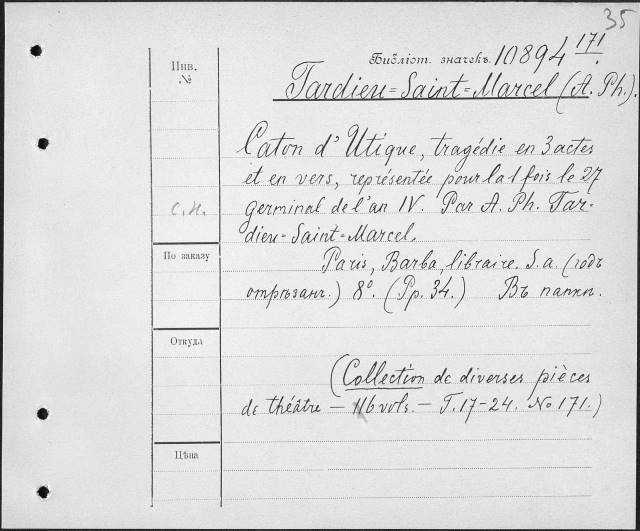 35
Инв.
№
Библіот. значекъ. 10894 171.
Tardieu=Saint=Marcel (A. Ph.).
Caton d'Utique, tragédie en 3 actes
et en vers, représentée pour la 1 fois le 27
с.н.
germinal de l'an IV. Par A. Ph. Tar-
dieu=Saint=Marcel.
По заказу
Paris, Barba, libraire. S. a. (годъ
отрѣзанъ.) 8º. (Pp. 34.) Въ папкѣ.
Откуда
(Collection de diverses pièces
de théâtre — 116 vols. — T. 17-24. No 171.)
Цѣна